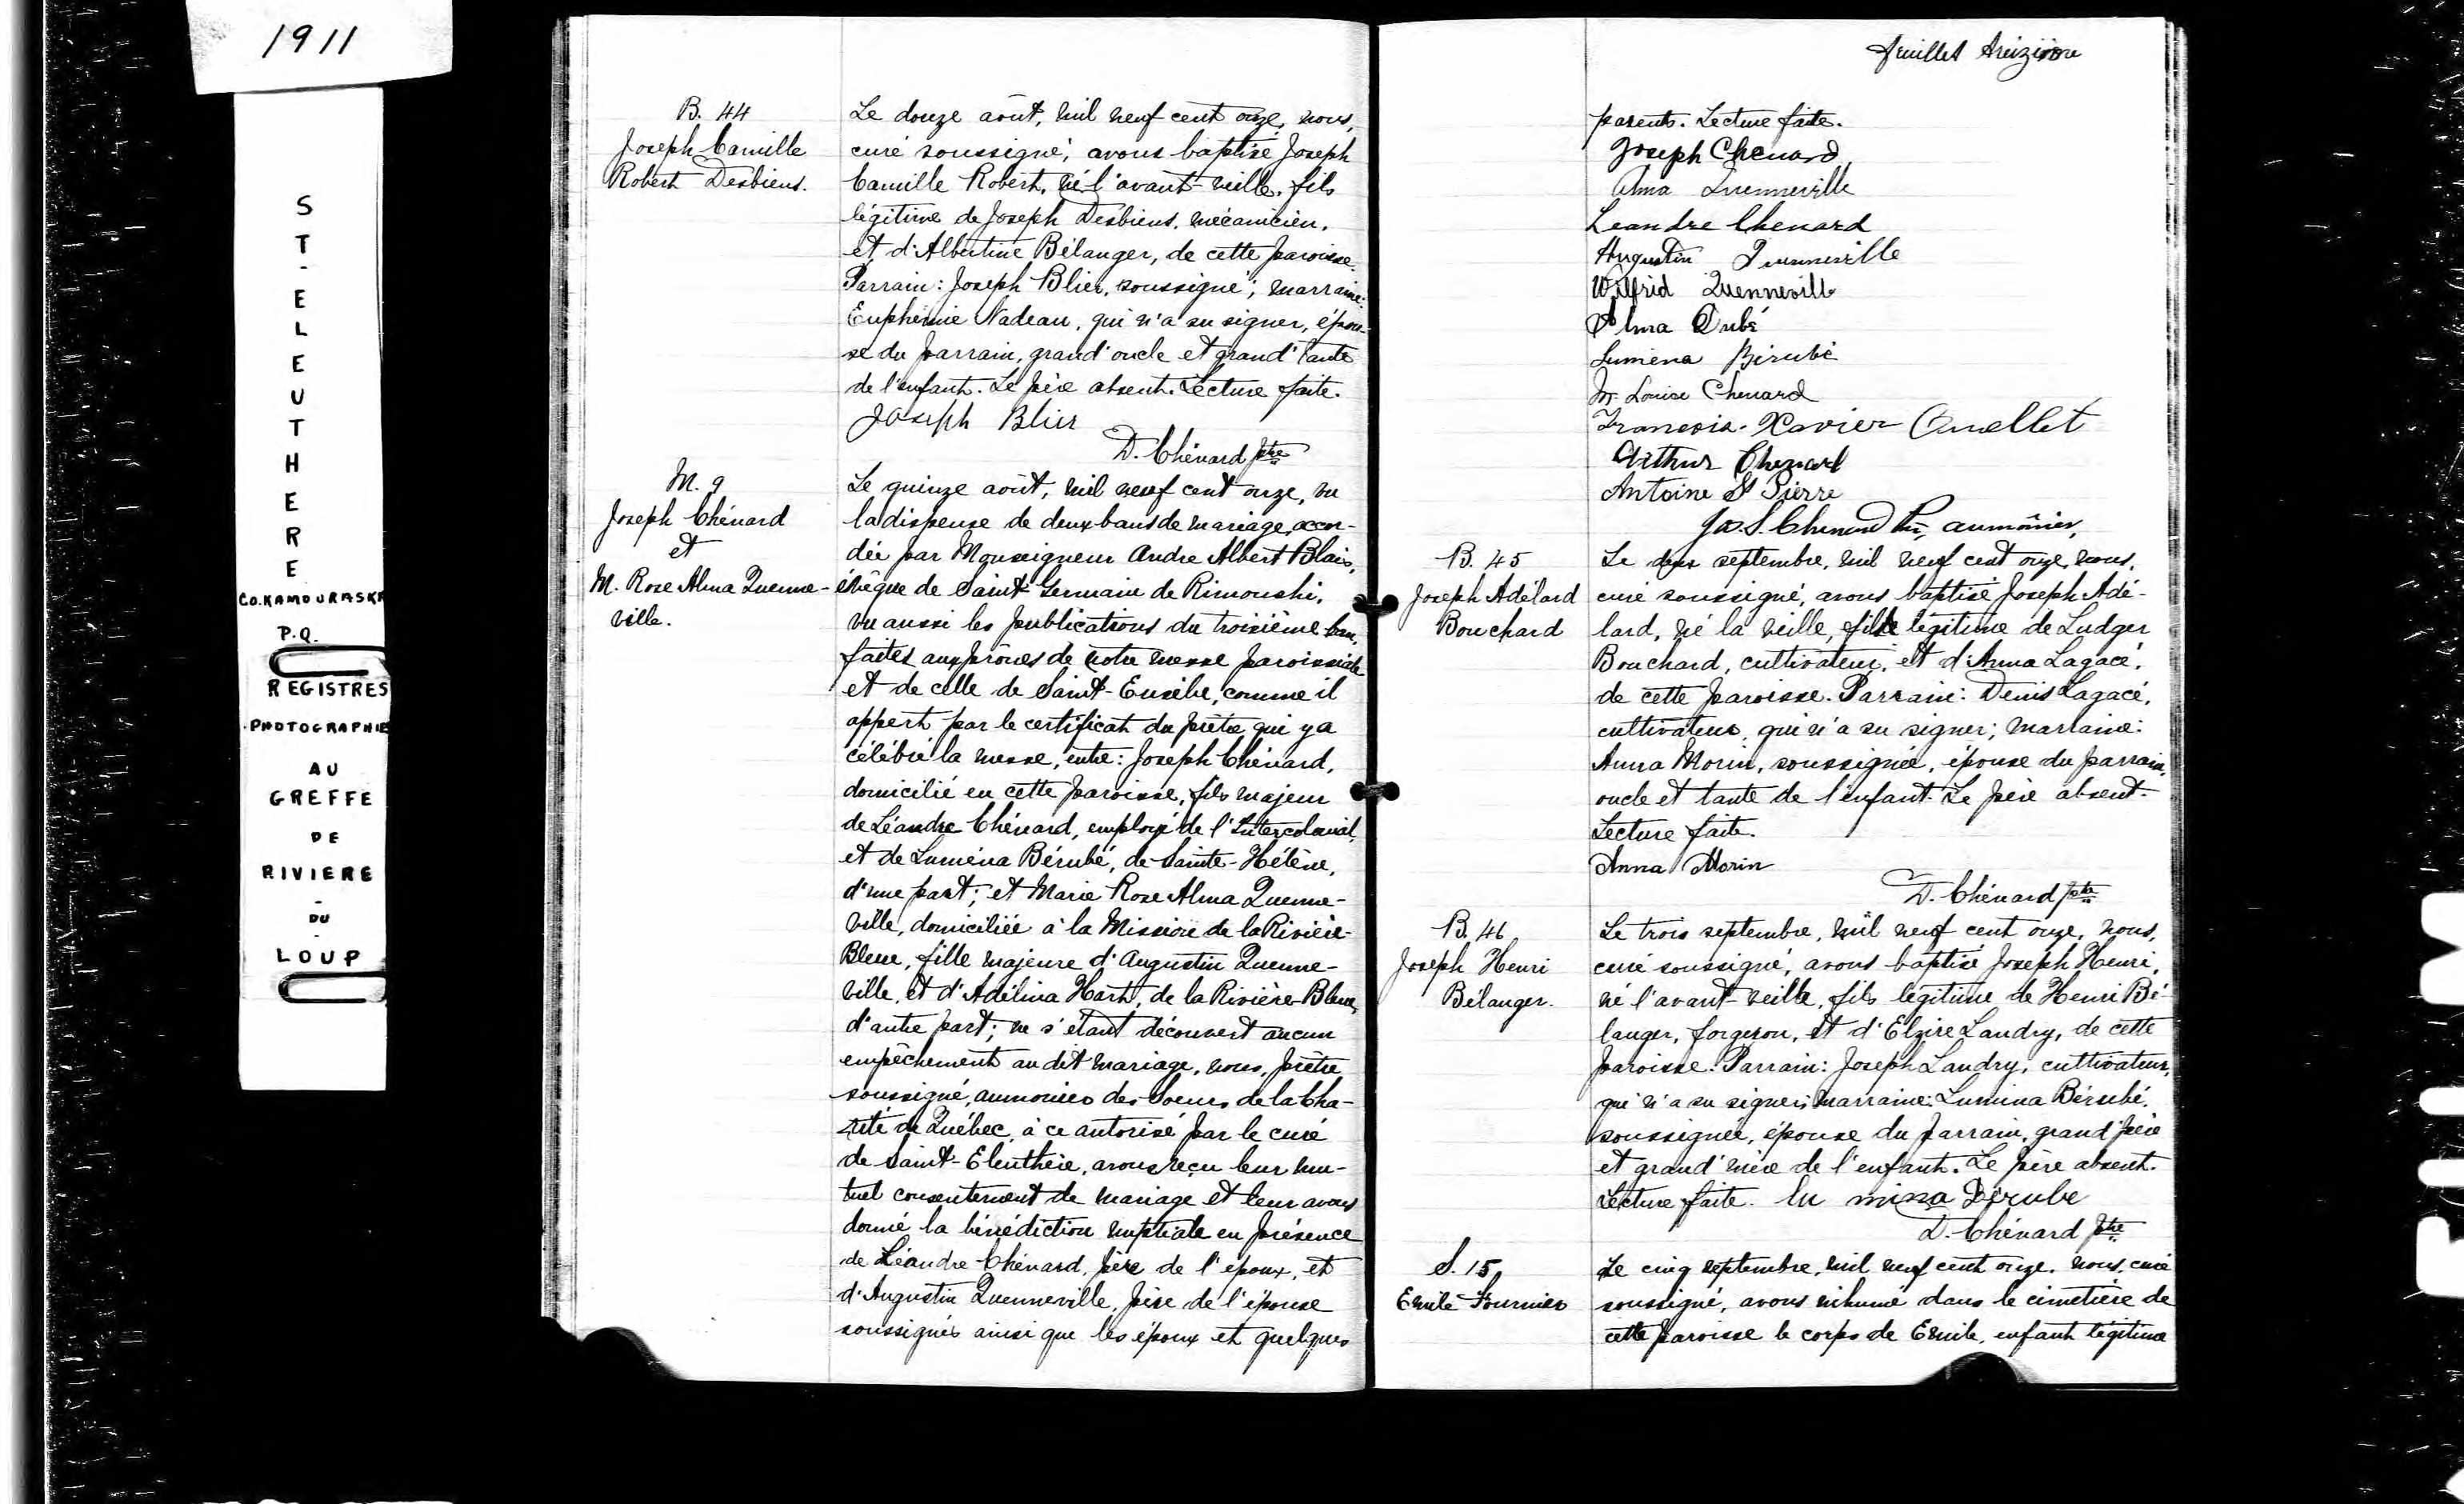 1911
ST-ELEUTHERE
CO. KAMOURASKA
P.Q.
REGISTRES
PHOTOGRAPHIE
AU
GREFFE
DE
RIVIERE
-
DU
-
LOUP
B. 44
Joseph Camille
Robert Desbiens.
Le douze août, mil neuf cent onze, nous,
curé soussigné, avons baptisé Joseph
Camille Robert, né l'avant-veille, fils
légitime de Joseph Desbiens, mécanicien,
et d'Albertine Bélanger, de cette paroisse.
Parrain: Joseph Blier, soussigné; marraine:
Euphémie Nadeau, qui n'a su signer, épou-
se du parrain, grand'oncle et grand'tante
de l'enfant. Le père absent. Lecture faite.
Joseph Blier
D. Chénard ptre
M. 9
Joseph Chénard
et
M. Rose Alma Quenne-
ville.
Le quinze août, mil neuf cent onze, vu
la dispense de deux bans de mariage, accor-
dée par Monseigneur André Albert Blais,
évêque de Saint Germain de Rimouski,
vu aussi les publications du troisième ban,
faites aux prônes de notre messe paroissiale
et de celle de Saint-Eusèbe, comme il
appert par le certificat du prêtre qui y a
célébré la messe, entre: Joseph Chénard,
domicilié en cette paroisse, fils majeur
de Léandre Chénard, employé de l'Intercolonial,
et de Luména Bérubé, de Sainte-Hélène,
d'une part; et Marie Rose Alma Quenne-
ville, domiciliée à la Mission de la Rivière-
Bleue, fille majeure d'Augustin Quenne-
ville, et d'Adélina Hart, de la Rivière-Bleue,
d'autre part; ne s'étant découvert aucun
empêchement au dit mariage, nous, prêtre
soussigné, aumônier des Soeurs de la Cha-
rité de Québec, à ce autorisé par le curé
de Saint-Eleuthère, avons reçu leur mu-
tuel consentement de mariage et leur avons
donné la bénédiction nuptiale en présence
de Léandre Chénard, père de l'époux, et
d'Augustin Quenneville, père de l'épouse
soussignés ainsi que les époux et quelques
feuillet treizième
parents. Lecture faite.
Joseph Chenard
Alma Quenneville
Leandre Chenard
Augustin Quenneville
Wilfrid Quenneville
Alma Dubé
Lumena Bérubé
M. Louise Chenard
Francois-Xavier Ouellet
Arthur Chenard
Antoine St Pierre
Jos. S. Chenard Ptr, aumônier,
B. 45
Joseph Adélard
Bouchard
Le deux septembre, mil neuf cent onze, nous,
curé soussigné, avons baptisé Joseph Adé-
lard, né la veille, fils légitime de Ludger
Bouchard, cultivateur, et d'Anna Lagacé,
de cette paroisse. Parrain: Denis Lagacé,
cultivateur, qui n'a su signer; marraine:
Anna Morin, soussignée, épouse du parrain,
oncle et tante de l'enfant. Le père absent.
Lecture faite.
Anna Morin
D. Chénard ptre
B. 46
Joseph Henri
Bélanger.
Le trois septembre, mil neuf cent onze, nous,
curé soussigné, avons baptisé Joseph Henri,
né l'avant-veille, fils légitime de Henri Bé-
langer, forgeron, et d'Elzire Landry, de cette
paroisse. Parrain: Joseph Landry, cultivateur,
qui n'a su signer; marraine: Lumina Bérubé,
soussignée, épouse du parrain, grand'père
et grand'mère de l'enfant. Le père absent.
Lecture faite. lu mina Bérube
D. Chénard ptre
S. 15
Emile Fournier
Le cinq septembre, mil neuf cent onze, nous, curé
soussigné, avons inhumé dans le cimetière de
cette paroisse le corps de Emile, enfant légitime